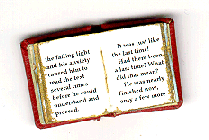 the fading light
and his anxiety
caused him to
read the text
several times
before he could
understand and
proceed.
It was not like
the last time!
Had there been
a last time? What
did this mean?
He was nearly
finished now,
only a few more